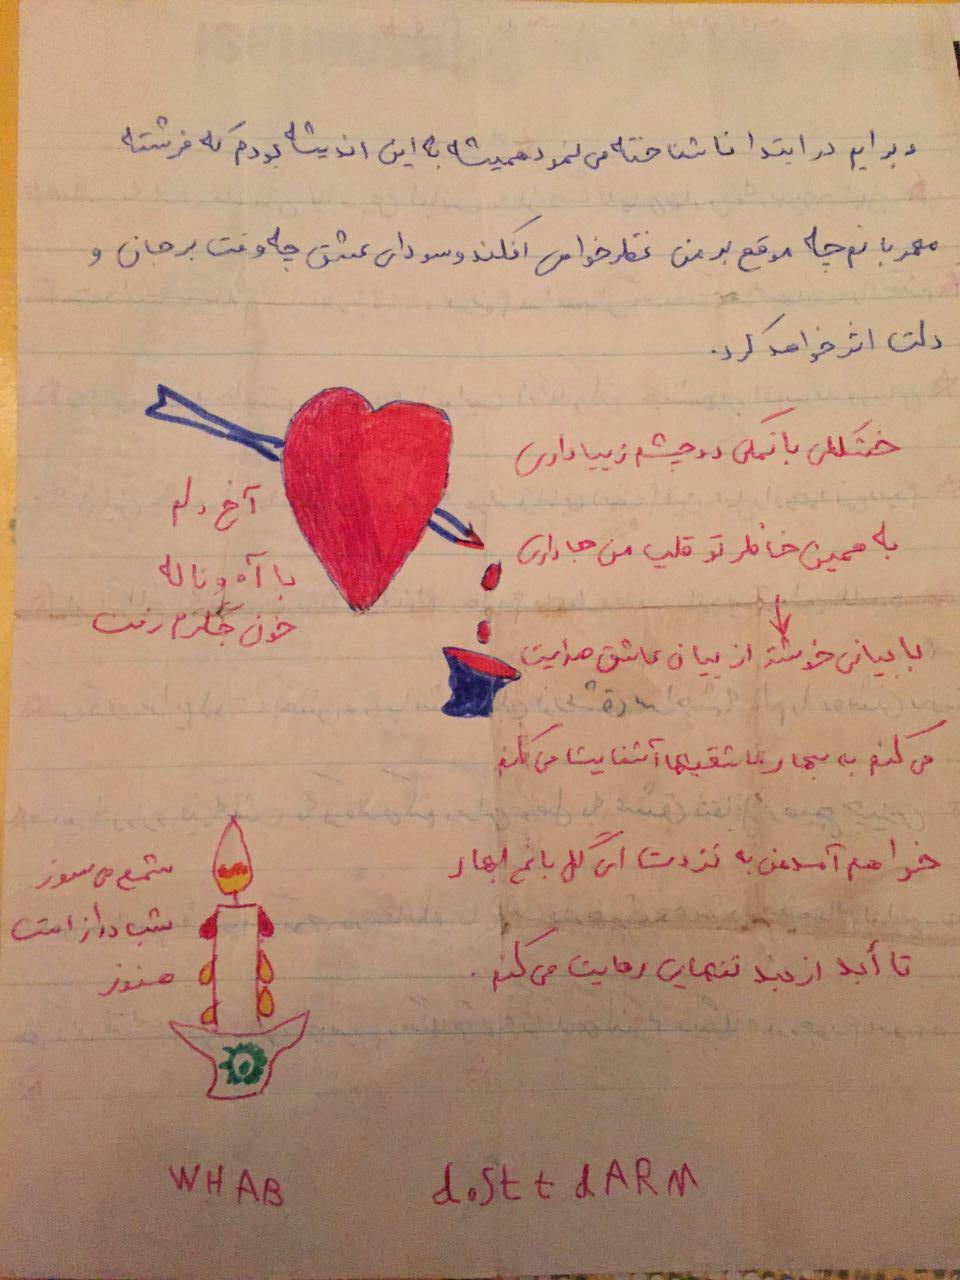 و برایم در ابتدا ناشناخته می نمود همیشه به این اندیشه بودم که فرشته
مهربانم چه موقع بر من نظر خواهی افکند و سودای عشق چه وقت بر جان و
دلت اثر خواهد کرد.
خشگلی بانمکی دو چشم زیبا داری
به همین خاطر تو قلب من جا داری
آخ دلم
با آه و ناله
خون جگرم رفت
با بیانی خوشتر از بیان عاشق صدایت
می کنم به بهار عاشقیها آشنایت می کنم
خواهم آمدمن به نزدت ای گل باغ
تا أبد از بند تنهایی رهایت می کنم.
شمع می سوز
شب دراز است
هنوز
WHAB
doStt dARM